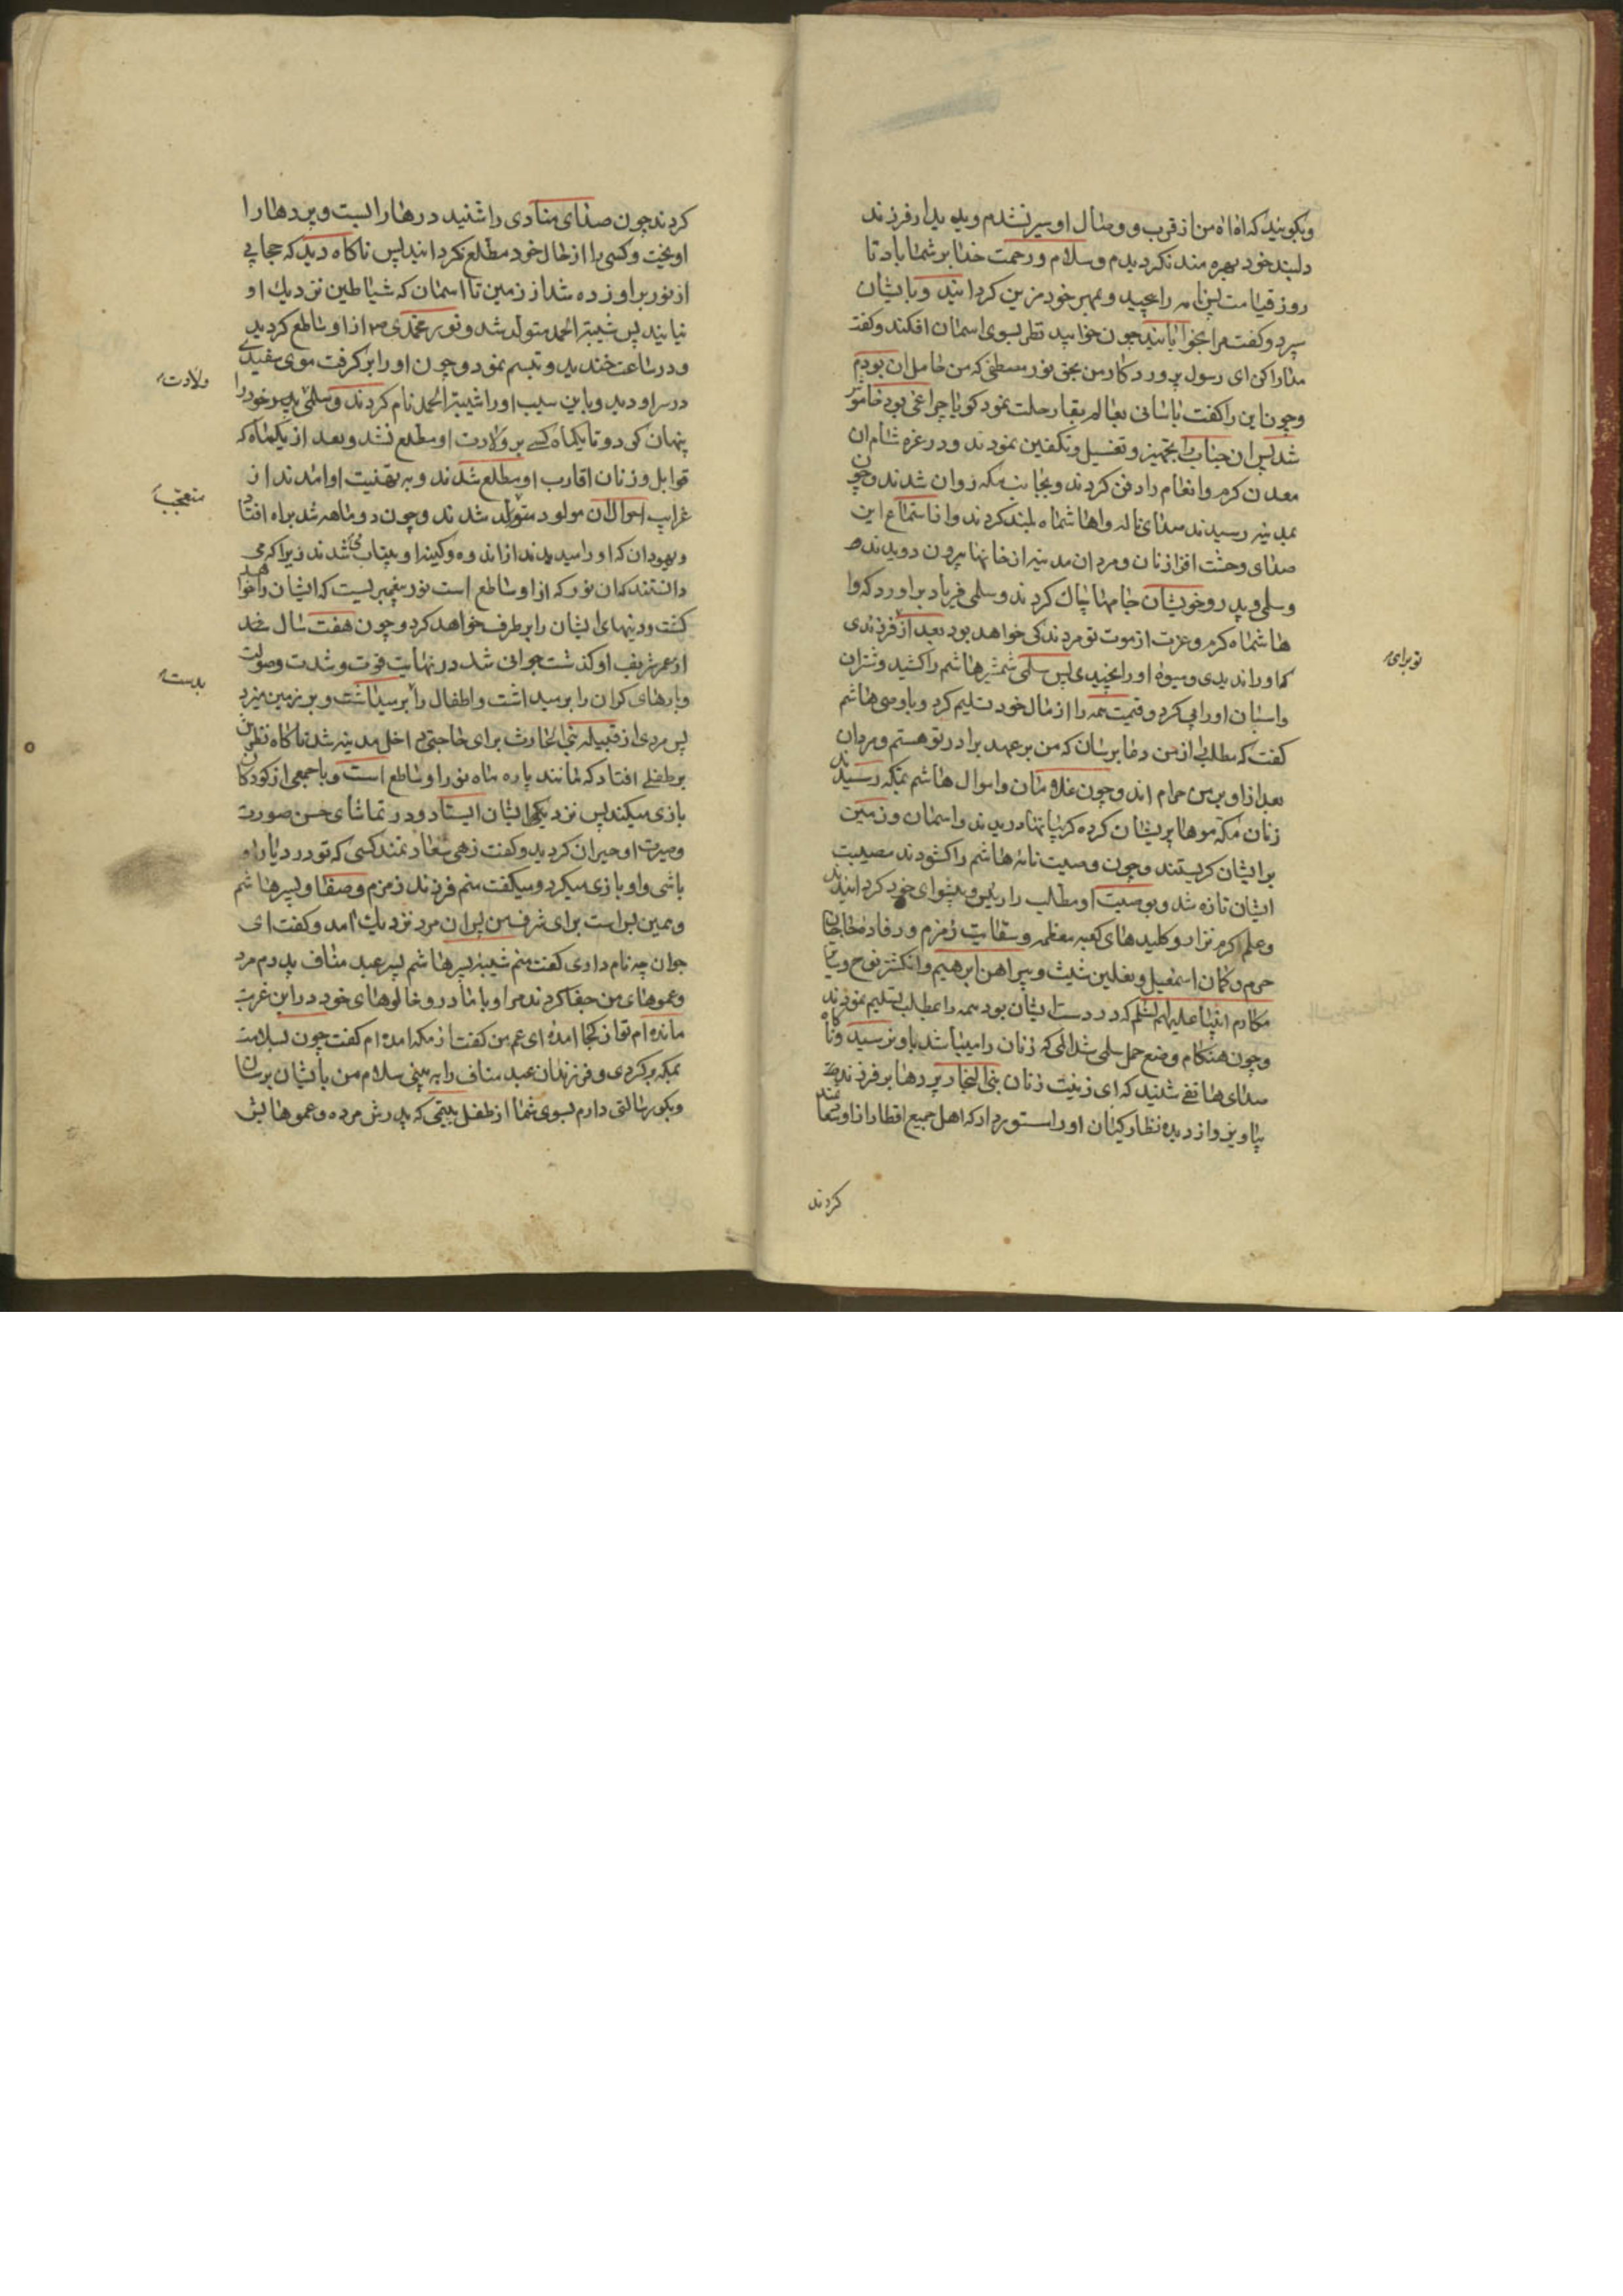 وبگوئید که اه اه من از قرب و وصال او سیر نشدم و به دیدار فرزند
دلبند خود بهره مند نگردیدم و سلام و رحمت خدا بر شما باد تا
روز قیامت پس نامه را پیچید و بمهر خود مزین گردانید و بایشان
سپرد و گفت مرا بخوابانید چون خوابید نظر بسوی اسمان افکند و گفت
مدارا کن ای رسول پروردگار من بحق نور مصطفی که من حامل ان بودم
و چون این را گفت باسانی بعالم بقا رحلت نمود گویا چراغی بود خاموش
شد پس ان جناب را تجهیز و تغسیل و تکفین نمودند و در غزه شام ان
معدن کرم و انعام را دفن کردند و بجانب مکه روان شدند و چون
بمدینه رسیدند صدای ناله واهاشماه بلند کردند و از استماع این
صدای وحشت افزا زنان و مردان مدینه از خانها بیرون دویدند
و سلمی و پدر و خویشان جامها چاک کردند و سلمی فریاد براورد که وا
هاشماه کرم و عزت از موت تو مردند کی خواهد بود بعد از تو فرزندی
تو برای
که او را ندیدی و میوه او را نچیدی پس سلمی شمشیر هاشم را کشید و شتران
و اسبان او را پی کرد و قیمت همه را از مال خود تسلیم کرد و با وصی هاشم
گفت که مطلب را از من دعا برسان که من بر عهد برادر تو هستم و مردان
بعد از او بر من حرام اند و چون غلامان و اموال هاشم بمکه رسیدند
زنان مکه موها پریشان کرده گریبانها دریدند و اسمان و زمین
بر ایشان گریستند و چون وصیت نامه هاشم را گشودند مصیبت
ایشان تازه شد و بوصیت او مطلب را رئیس و پیشوای خود گردانیدند
و علم اکرم نزار و کلیدهای کعبه معظمه و سقایت زمزم و رفادهٔ حاجیان
حرم و کمان اسمعیل و نعلین شیث و پیراهن ابرهیم و انگشتر نوح و
مکارم انبیا علیهم السلم که در دست ایشان بود همه را بمطلب تسلیم نمودند
و چون هنگام وضع حمل سلمی شد المی که زنان را میباشد باو نرسید و ناگاه
صدای هاتفی شنید که ای زینت زنان بنی النجار پردها بر فرزند خود
بیاویز و از دیده نظارگیان او را مستور دار که اهل جمیع اقطار از او سعادتمند
کردند
کردند چون صدای منادی را شنید درها را بست و پردها را
اویخت و کسی را از حال خود مطلع نگردانید پس ناگاه دید که حجابی
از نور بر او زده شد از زمین تا اسمان که شیاطین نزدیک او
نیایند پس شیبة الحمد متولد شد و نور محمدی ص از او ساطع گردید
و در ساعت خندید و تبسم نمود و چون او را بر گرفت موی سفیدی
ولادت
در سر او دید و باین سبب او را شیبة الحمد نام کردند و سلمی پسر خود را
پنهان کرد و تا یکماه کسی بر ولادت او مطلع نشد و بعد از یکماه که
قوابل و زنان اقارب او مطلع شدند و به تهنیت او امدند از
متعجب
غرایب احوال ان مولود متولد شدند و چون دو ماهه شد براه افتاد
و یهودان که او را میدیدند از اندوه و کینه او بیتاب می شدند زیرا که می
دانستند که ان نور که از او ساطع است نور پیغمبریست که ایشان را خواهد
کشت و دینهای ایشان را بر طرف خواهد کرد و چون هفت سال
از عمر شریف او گذشت جوانی شد در نهایت قوت و شدت و صولت
بدست
و بارهای گران را بر میداشت و اطفال را بر میداشت و بر زمین میزد
پس مردی از قبیله بنی الحارث برای حاجتی داخل مدینه شد ناگاه نظرش
بر طفلی افتاد که مانند پاره ماه نور او ساطع است و با جمعی از کودکان
بازی میکند پس نزدیک ایشان ایستاد و در تماشای حسن صورت
و سیرت او حیران گردید و گفت زهی سعادتمند کسی که تو در دیار او
باشی و او بازی میکرد و میگفت منم فرزند زمزم و صفا و پسر هاشم
و همین بس است برای شرف من پس ان مرد نزدیک امد و گفت ای
جوان چه نام داری گفت منم شیبه پسر هاشم پسر عبد مناف پدرم مرد
و عموهای من جفا کردند مرا و با مادر و خالوهای خود در این غربت
مانده ام تو از کجا امدهٔ ای عم من گفت از مکه امده ام گفت چون بسلامت
بمکه برگردی و فرزندان عبد مناف را به بینی سلام من بایشان برسان
و بگو رسالتی دارم بسوی شما از طفل یتیمی که پدرش مرده و عموهایش